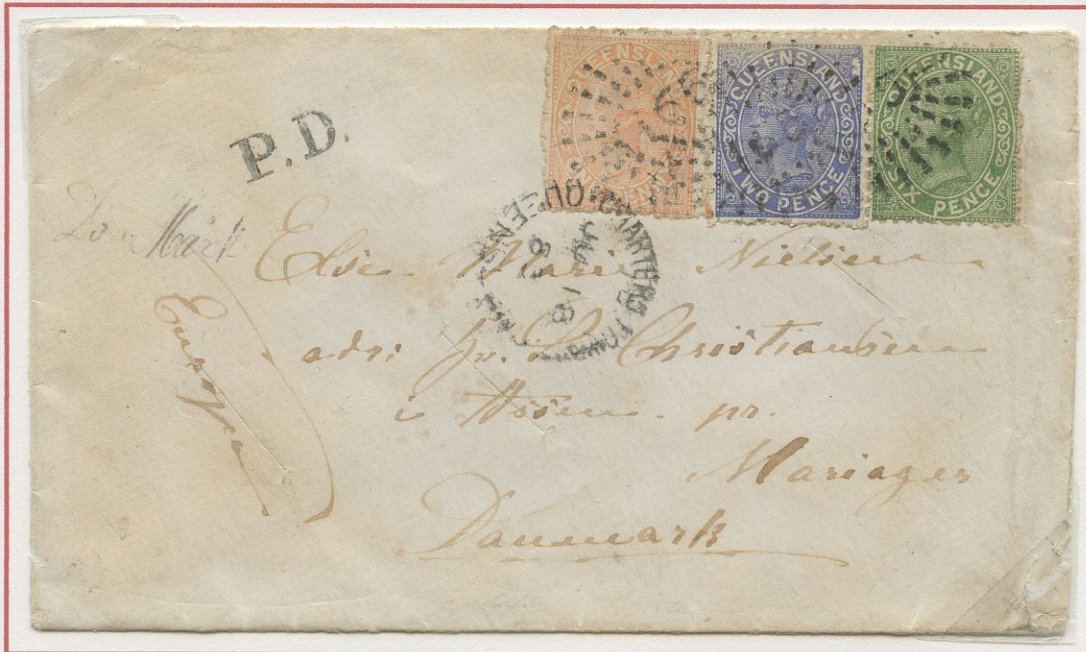 P.D.
QUEENSLAND
ONE PENNY
QUEENSLAND
TWO PENCE
QUEENSLAND
SIX PENCE
CHARTERS TOWERS
QUEENSLAND
JU
18
Mark
Europa
Else Marie Nielsen
adr: Chr. Christiansen
i Assens pr.
Mariager
Danmark